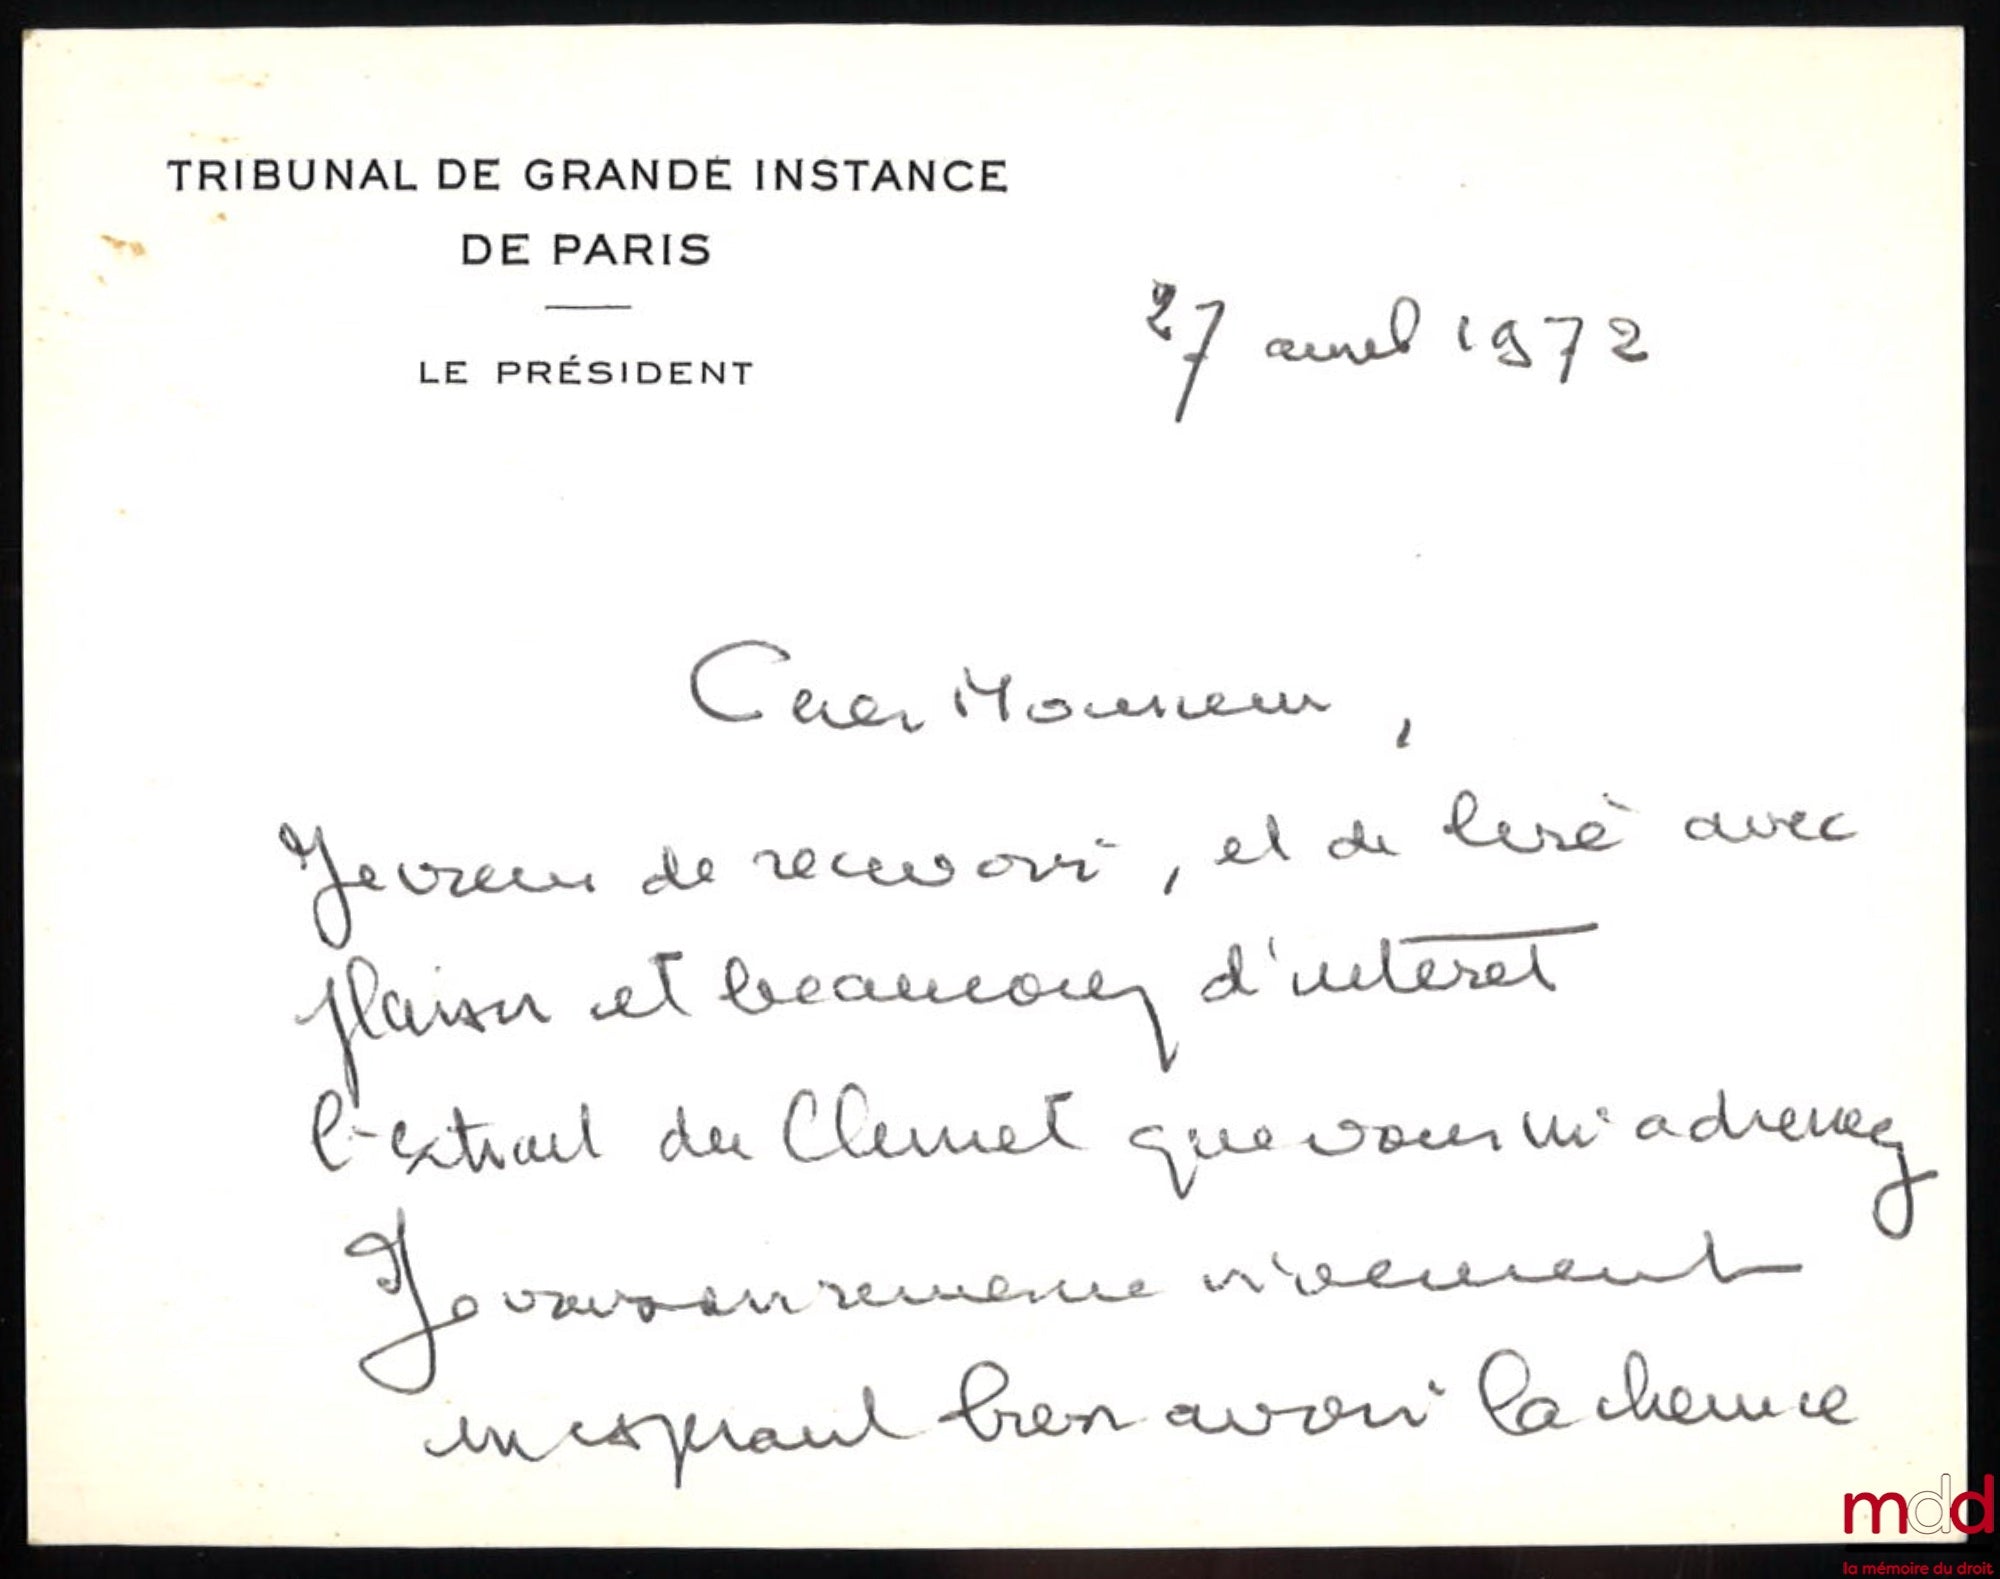 TRIBUNAL DE GRANDE INSTANCE
DE PARIS
LE PRÉSIDENT
27 avril 1972
Cher Monsieur,
Je viens de recevoir, et de lire avec
plaisir et beaucoup d'intérêt
l'extrait du Clunet que vous m'adressez
Je vous en remercie vivement
en espérant bien avoir la chance
mdd
la mémoire du droit